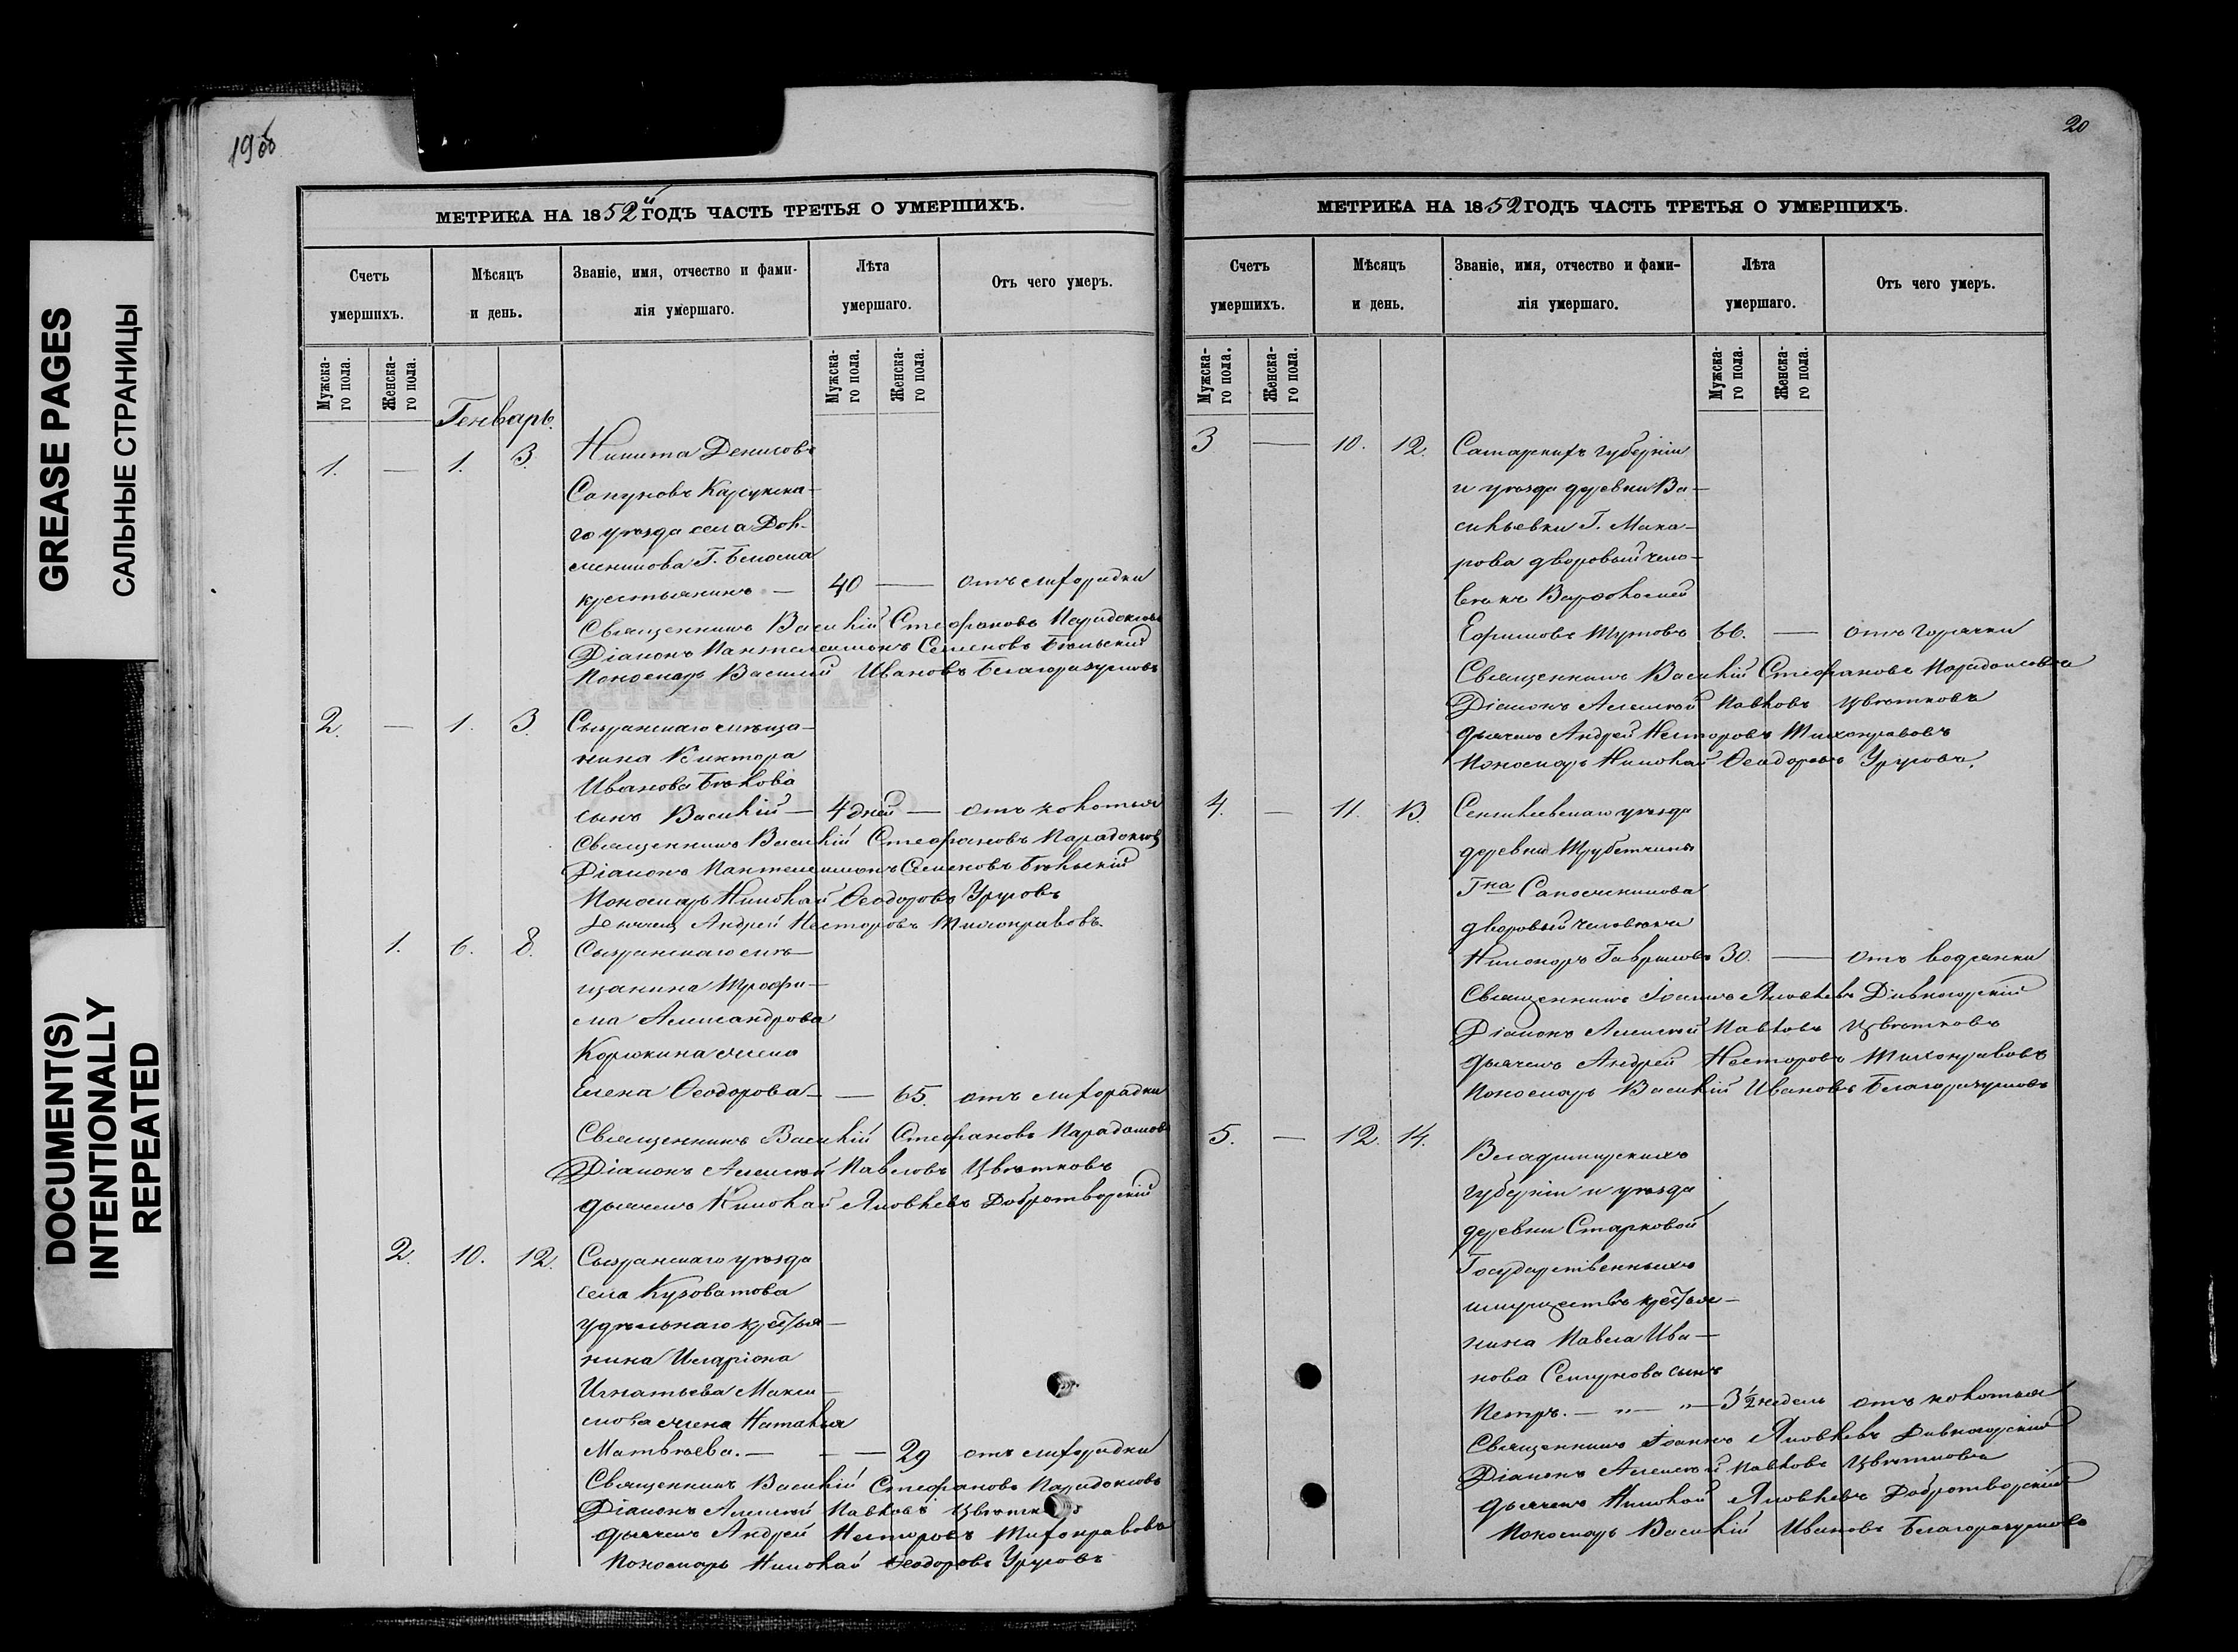 GREASE PAGES
САЛЬНЫЕ СТРАНИЦЫ
DOCUMENT(S)
INTENTIONALLY
REPEATED
19об
МЕТРИКА НА 1852й ГОДЪ ЧАСТЬ ТРЕТЬЯ О УМЕРШИХЪ.
Счетъ умершихъ.
Мѣсяцъ и день.
Званіе, имя, отчество и фами-
лія умершаго.
Лѣта умершаго.
Отъ чего умеръ.
Мужска-
го пола.
Женска-
го пола.
Мужска-
го пола.
Женска-
го пола.
Генварь.
1. — 1. 3. Никита Денисовъ
Сапуновъ Карсунска-
го уѣзда села
Г.
крестьянинъ — 40 — отъ лихорадки
Священникъ Василій Стефановъ Парадоксовъ
Діаконъ Пантелеимонъ Семеновъ Бѣльскій
Пономарь Василій Ивановъ Благоразумовъ
2. — 1. 3. Сызранскаго мѣща-
нина Виктора
Иванова Бѣлова
сынъ Василій — 4 дней — отъ колотья
Священникъ Василій Стефановъ Парадоксовъ
Діаконъ Пантелеимонъ Семеновъ Бѣльскій
Пономарь Николай Ѳеодоровъ Урусовъ
Дьячекъ Андрей Несторовъ Тихонравовъ.
1. 6. 8. Сызранскаго мѣ-
щанина Трофи-
ма Александрова
Корюкина жена
Елена Ѳеодорова — — 65. отъ лихорадки
Священникъ Василій Стефановъ Парадоксовъ
Діаконъ Алексѣй Павловъ Цвѣтковъ
Дьячекъ Николай Яковлевъ Добротворскій
2. 10. 12. Сызранскаго уѣзда
села Кузоватова
удѣльнаго крестья-
нина Иларіона
Игнатьева Макси-
мова жена Наталья
Матвѣева. — — — 29 отъ лихорадки
Священникъ Василій Стефановъ Парадоксовъ
Діаконъ Алексѣй Павловъ Цвѣтковъ
Дьячекъ Андрей Несторовъ Тихонравовъ
Пономарь Николай Ѳеодоровъ Урусовъ
20
МЕТРИКА НА 1852 ГОДЪ ЧАСТЬ ТРЕТЬЯ О УМЕРШИХЪ.
Счетъ умершихъ.
Мѣсяцъ и день.
Званіе, имя, отчество и фами-
лія умершаго.
Лѣта умершаго.
Отъ чего умеръ.
Мужска-
го пола.
Женска-
го пола.
Мужска-
го пола.
Женска-
го пола.
3 — 10. 12. Самарскихъ губерніи
и уѣзда деревни Ва-
сильевки Г. Мака-
рова дворовый чело-
вѣкъ Варѳоломей
Ефимовъ Шутовъ 66. — отъ горячки
Священникъ Василій Стефановъ Парадоксовъ
Діаконъ Алексѣй Павловъ Цвѣтковъ
Дьячекъ Андрей Несторовъ Тихонравовъ
Пономарь Николай Ѳеодоровъ Урусовъ.
4. — 11. 13. Сенгилеевскаго уѣзда
деревни Трубетчины
Гна Сапожникова
дворовый человѣкъ
Никоноръ Гавриловъ 30. — отъ водянки
Священникъ Іоаннъ Яковлевъ Дивногорскій
Діаконъ Алексѣй Павловъ Цвѣтковъ
Дьячекъ Андрей Несторовъ Тихонравовъ
Пономарь Василій Ивановъ Благоразумовъ
5. — 12. 14. Владимирскихъ
губерніи и уѣзда
деревни Старковой
Государственныхъ
имуществъ крестья-
нина Павла Ива-
нова Семунова сынъ
Петръ. — „ — „ — 3½ недель отъ колотья
Священникъ Іоаннъ Яковлевъ Дивногорскій
Діаконъ Алексѣй Павловъ Цвѣтковъ
Дьячекъ Николай Яковлевъ Добротворскій
Пономарь Василій Ивановъ Благоразумовъ